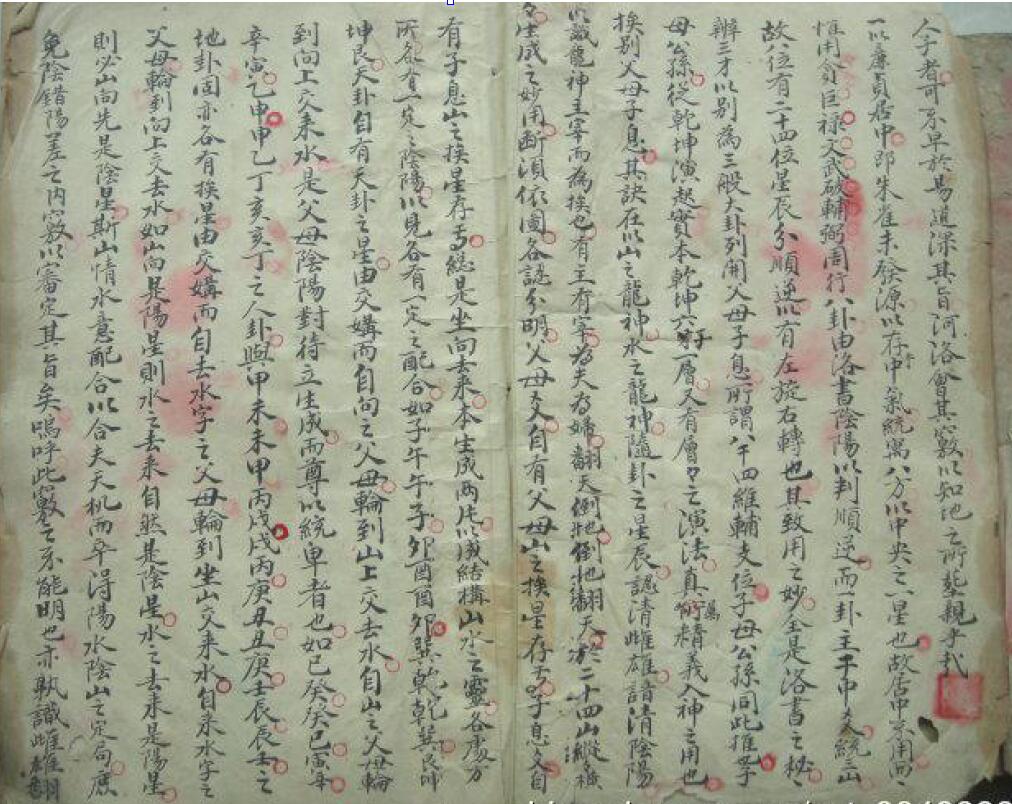 人子者可不早於易道深其旨河洛會其竅以知地之所塟親乎哉
一以廉貞居中即朱雀未發源以存中氣統寓八方以中央之一星也故居中不用而
惟用貪巨祿文武破輔弼周行八卦由洛書陰陽以判順逆而一卦主乎中爻統三山
故位有二十四位星辰分順逆以有左旋右轉也其致用之妙全是洛書之秘
辦三才以別為三般大卦列開父母子息所謂八干四維輔支位子母公孫同此推也子
母公孫從乾坤演起實本乾坤六子一層又有層々之演法真所謂精義入神之用也
挨別父母子息其訣在以山之龍神水之龍神隨卦之星辰認清雌雄諳清陰陽
以識龍神主宰而為挨也有主有宰為夫為婦翻天倒地倒地翻天於二十四山縱橫
生成之妙用断須依圖各認分明父母爻自有父母山之挨星存焉子息爻自
有子息山之挨星存焉總是坐向去來本生成兩片以成結構山水之靈各處方
所各有一定之陰陽以見各有一定之配合如子午午子卯酉酉卯巽乾乾巽艮坤
坤艮天卦自有天卦之星由交媾而自向之父母輪到山上交去水自山之父母輪
到向上交来水是父母陰陽對待立生成而尊以統卑者也如巳癸癸巳寅辛
辛寅乙申申乙丁亥亥丁之人卦與甲未未甲丙戌戌丙庚丑丑庚壬辰辰壬之
地卦固亦各有挨星由交媾而自去水字之父母輪到坐山交来水自来水字之
父母輪到向上交去水如山向是陽星則水之去来自然是陰星水之去来是陽星
則必山向先是陰星斯山情水意配合以合夫天机而卒得陽水陰山之定局庶
免陰錯陽差之内竅以審定其旨矣嗚呼此竅之不能明也亦孰識雌雄翻